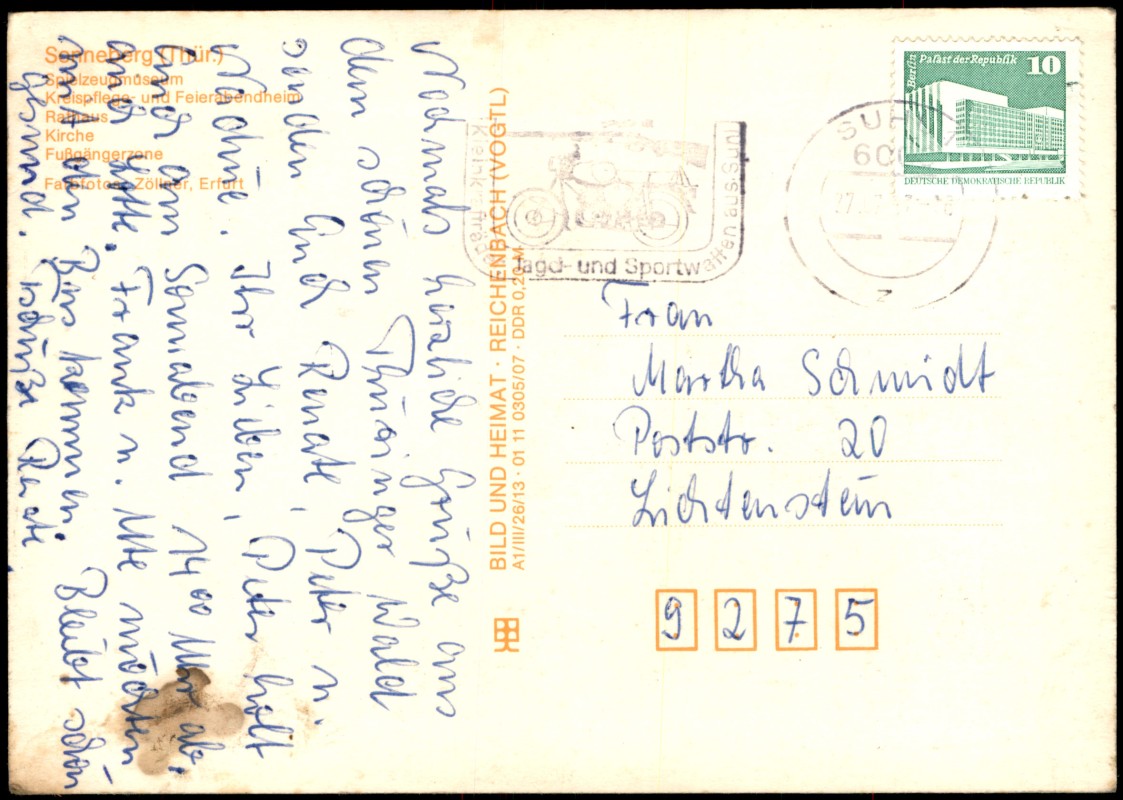 Sonneberg (Thür.)
Spielzeugmuseum
Kreispflege- und Feierabendheim
Rathaus
Kirche
Fußgängerzone
Farbfotos: Zöllner, Erfurt
Nochmals herzliche Grüße aus
dem schönen Thüringer Wald
senden Euch Renate, Peter u.
Nadine. Ihr Lieben, Peter holt
Euch am Sonnabend 14 00 Uhr ab,
auch Lotte, Frank u. Ute möchten
mit den Bus kommen. Bleibt schön
gesund. Tschüß
BILD UND HEIMAT · REICHENBACH (VOGTL)
A1/III/26/13 · 01 11 0305/07 · DDR 0,20 M
Kleinkrafträder
Jagd- und Sportwaffen aus Suhl
SUHL
60
Berlin Palast der Republik 10
DEUTSCHE DEMOKRATISCHE REPUBLIK
Frau
Martha Schmidt
Poststr. 20
Lichtenstein
9 2 7 5